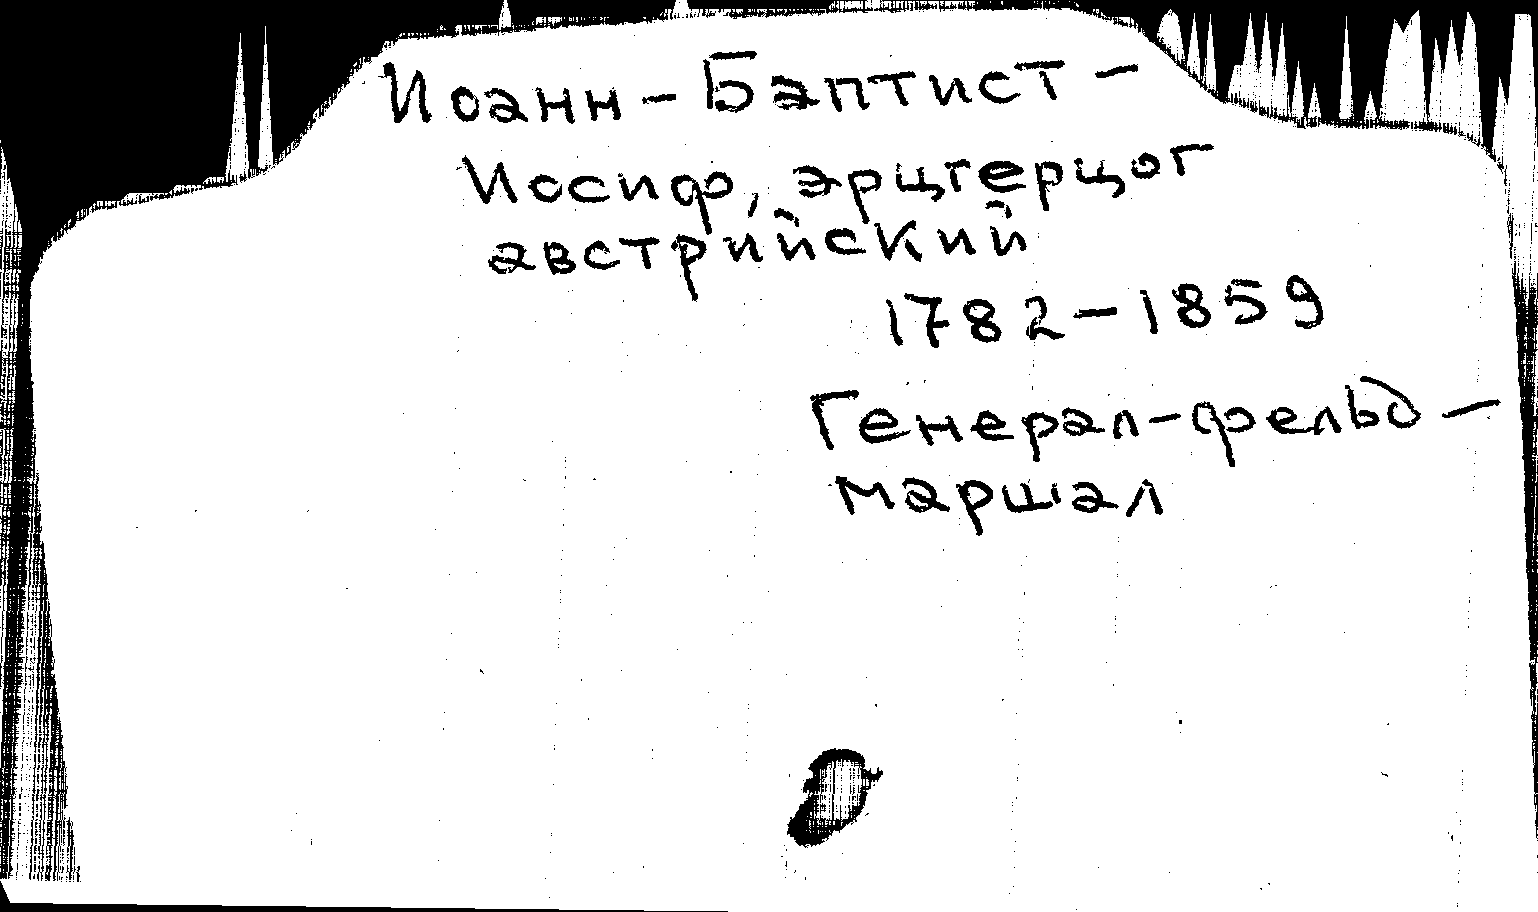 Иоанн-Баптист-
Иосиф, эрцгерцог
австрийский
1782-1859
Генерал-фельд-
маршал